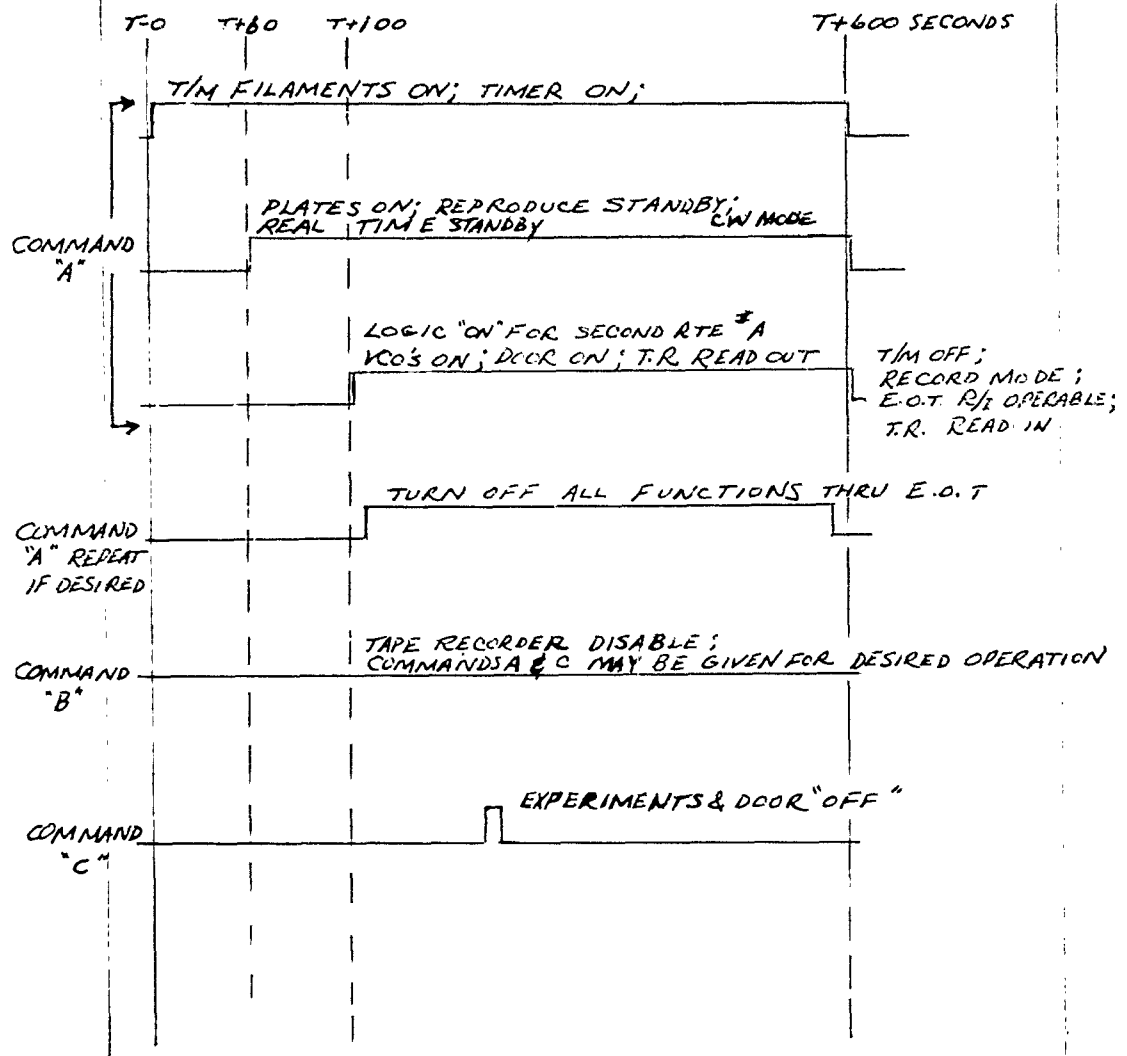 T-0 T+60 T+100 T+600 SECONDS
T/M FILAMENTS ON; TIMER ON;
PLATES ON; REPRODUCE STANDBY;
REAL TIME STANDBY CW MODE
COMMAND
"A"
LOGIC "ON" FOR SECOND RTE #A
VCO'S ON; DOOR ON; T.R. READ OUT
T/M OFF;
RECORD MODE;
E.O.T. R/I OPERABLE;
T.R. READ IN
TURN OFF ALL FUNCTIONS THRU E.O.T
COMMAND
"A" REPEAT
IF DESIRED
TAPE RECORDER DISABLE;
COMMANDS A & C MAY BE GIVEN FOR DESIRED OPERATION
COMMAND
"B"
EXPERIMENTS & DOOR "OFF"
COMMAND
"C"